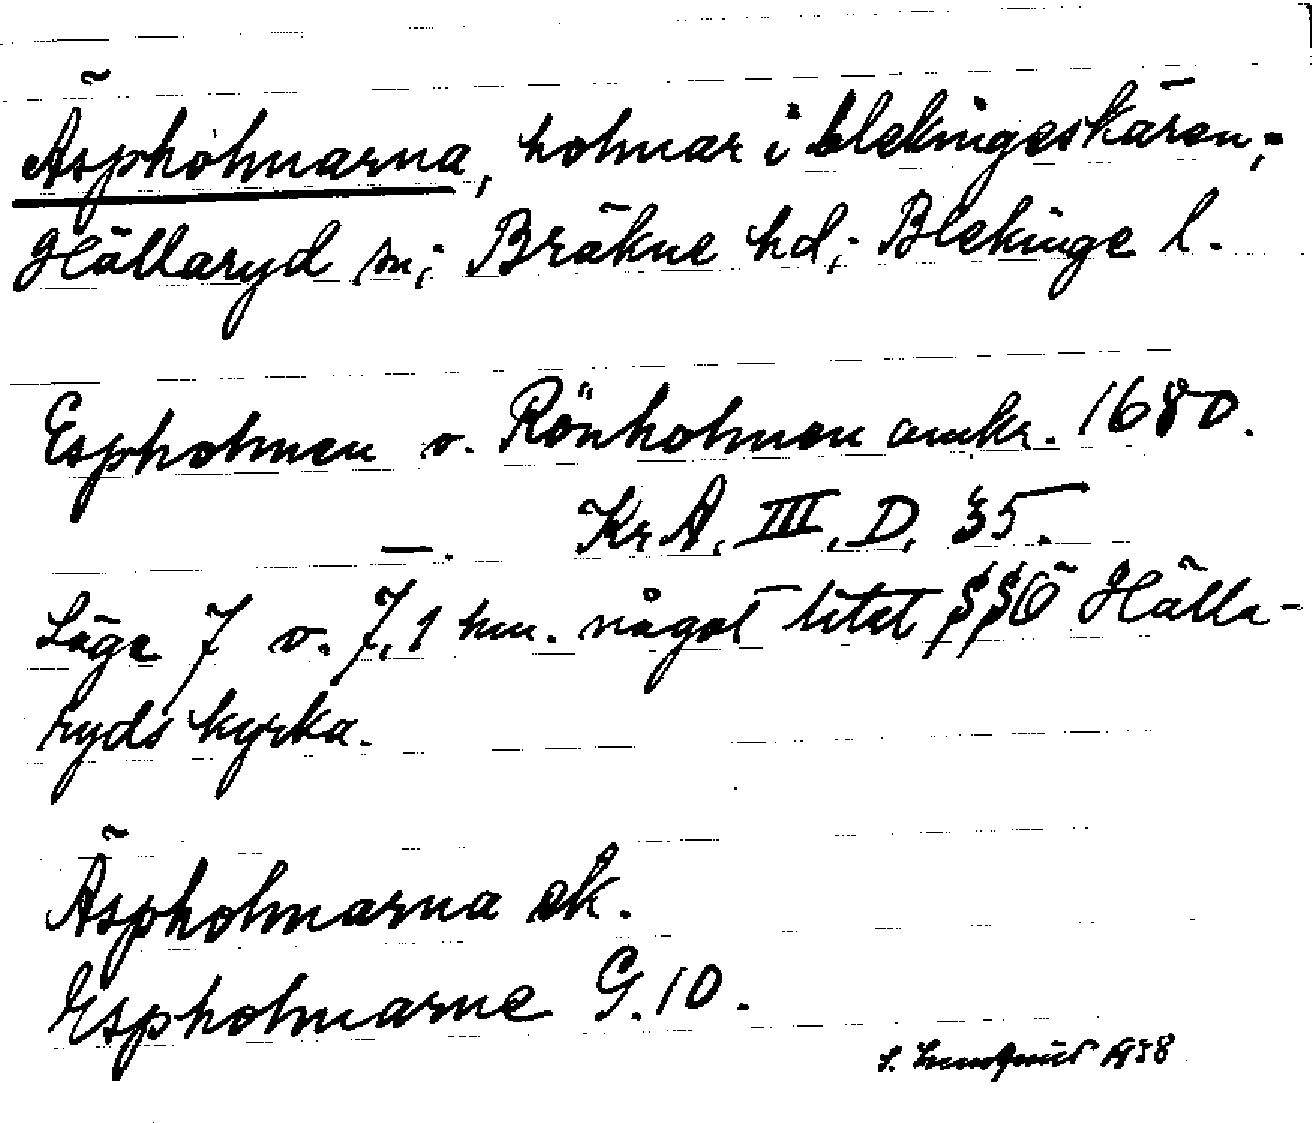 Äspholmarna, holmar i blekingeskären;
Hällaryd sn; Bräkne hd; Blekinge l.
Espholmen o. Rönholmen omkr. 1680.
Kr A. III. D. 35.
Läge 7 o. 7,1 km. något litet SSÖ Hälla-
ryds kyrka.
Äspholmarna ek.
Espholmarne G. 10.
S. Lundquist 1938